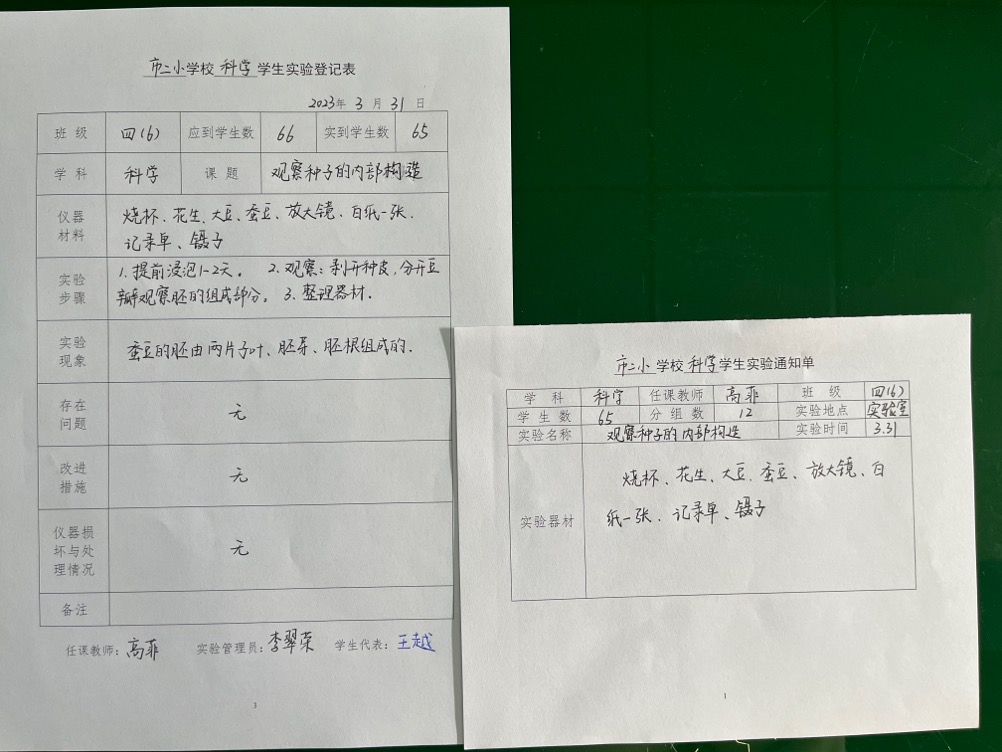 市二小学校 科学 学生实验登记表
2023年 3 月 31 日
班 级 四(6) 应到学生数 66 实到学生数 65
学 科 科学 课 题 观察种子的内部构造
仪器
材料
烧杯、花生、大豆、蚕豆、放大镜、白纸一张、
记录单、镊子
实验
步骤
1.提前浸泡1-2天。 2.观察:剥开种皮,分开豆
瓣观察胚的组成部分。 3.整理器材.
实验
现象
蚕豆的胚由两片子叶、胚芽、胚根组成的.
存在
问题
无
改进
措施
无
仪器损
坏与处
理情况
无
备注
任课教师:高菲 实验管理员:李翠荣 学生代表:王越
3
市二小 学校 科学 学生实验通知单
学 科 科学 任课教师 高菲 班 级 四(6)
学 生 数 65 分 组 数 12 实验地点 实验室
实验名称 观察种子的内部构造 实验时间 3.31
实验器材
烧杯、花生、大豆、蚕豆、放大镜、白
纸一张、记录单、镊子
1